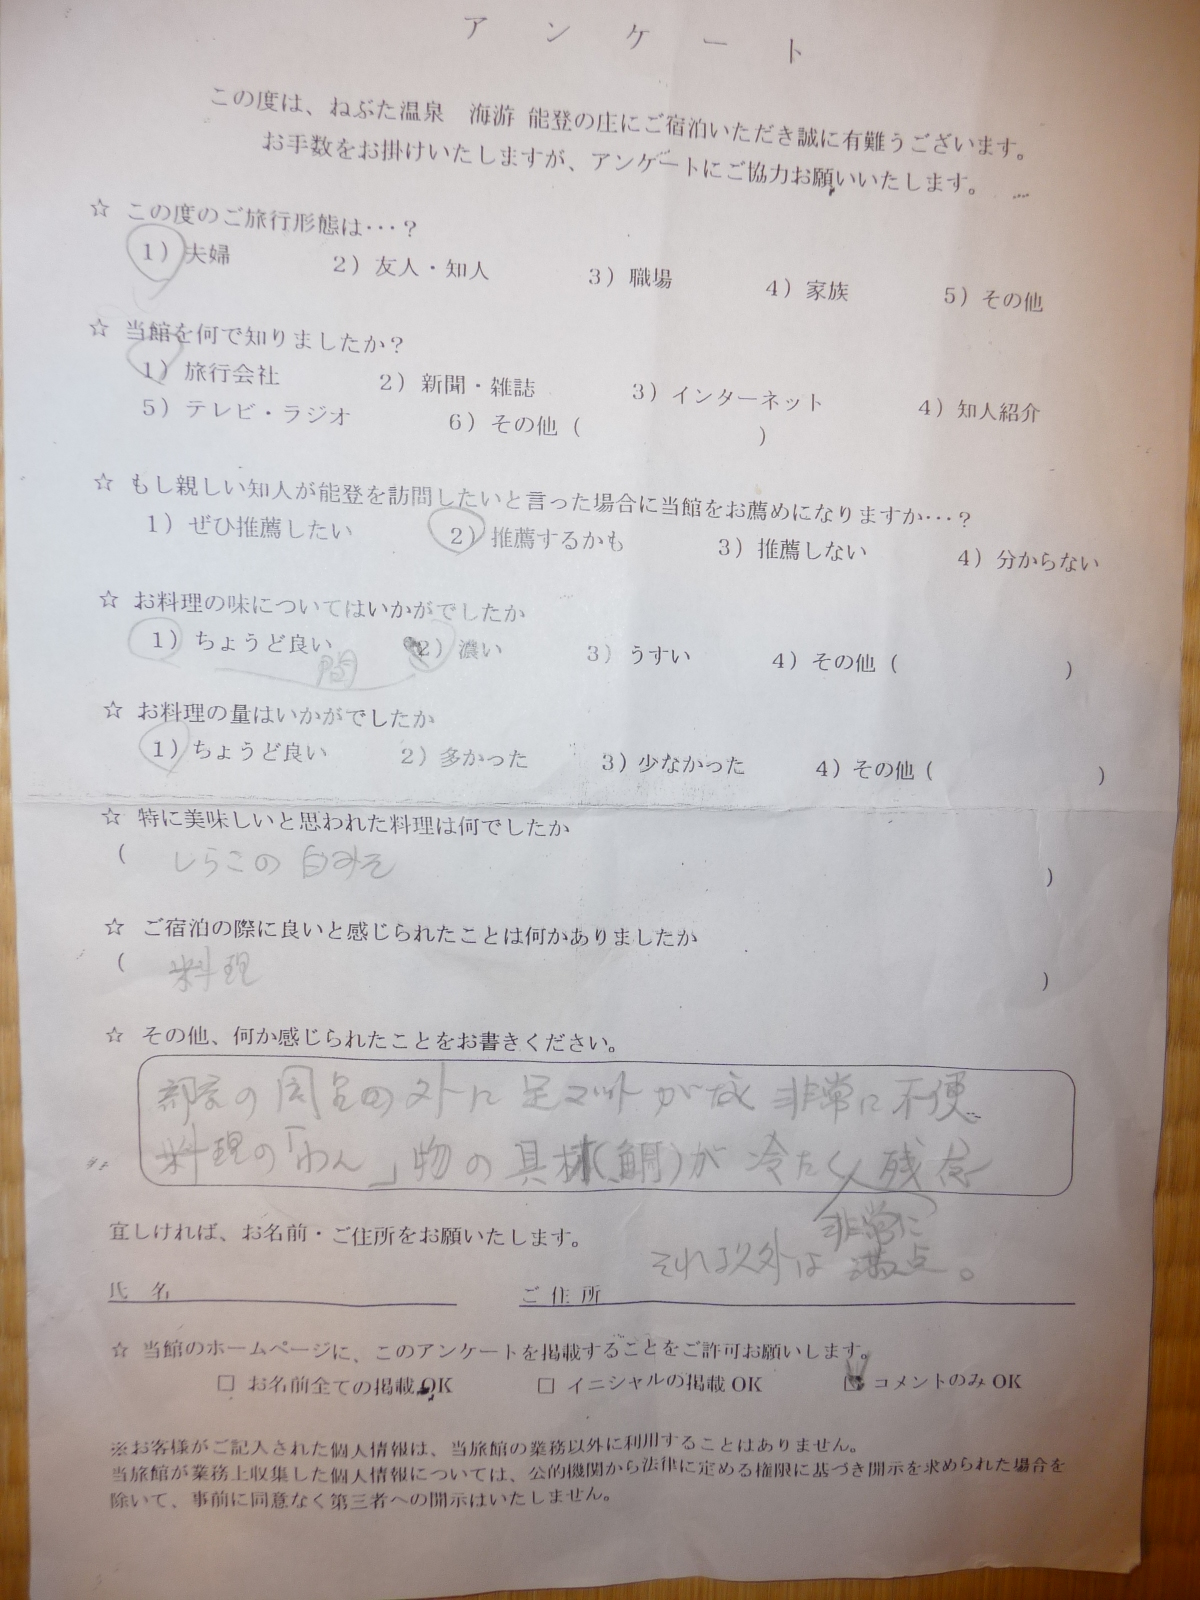 アンケート
この度は、ねぶた温泉 海游 能登の庄にご宿泊いただき誠に有難うございます。
お手数をお掛けいたしますが、アンケートにご協力お願いいたします。
☆ この度のご旅行形態は･･･？
1）夫婦 2）友人・知人 3）職場 4）家族 5）その他
☆ 当館を何で知りましたか？
1）旅行会社 2）新聞・雑誌 3）インターネット 4）知人紹介
5）テレビ・ラジオ 6）その他（ ）
☆ もし親しい知人が能登を訪問したいと言った場合に当館をお薦めになりますか･･･？
1）ぜひ推薦したい 2）推薦するかも 3）推薦しない 4）分からない
☆ お料理の味についてはいかがでしたか
1）ちょうど良い 2）濃い 3）うすい 4）その他（ ）
間
☆ お料理の量はいかがでしたか
1）ちょうど良い 2）多かった 3）少なかった 4）その他（ ）
☆ 特に美味しいと思われた料理は何でしたか
（ しらこの白みそ ）
☆ ご宿泊の際に良いと感じられたことは何かありましたか
（ 料理 ）
☆ その他、何か感じられたことをお書きください。
部屋の 外に 足マットが 非常に不便
料理の「わん」物の具材（鯛）が冷たく残念
宜しければ、お名前・ご住所をお願いいたします。
非常に
それ以外は 満点。
氏 名 ご 住 所
☆ 当館のホームページに、このアンケートを掲載することをご許可お願いします。
□ お名前全ての掲載OK □ イニシャルの掲載OK □ コメントのみOK
※お客様がご記入された個人情報は、当旅館の業務以外に利用することはありません。
当旅館が業務上収集した個人情報については、公的機関から法律に定める権限に基づき開示を求められた場合を
除いて、事前に同意なく第三者への開示はいたしません。